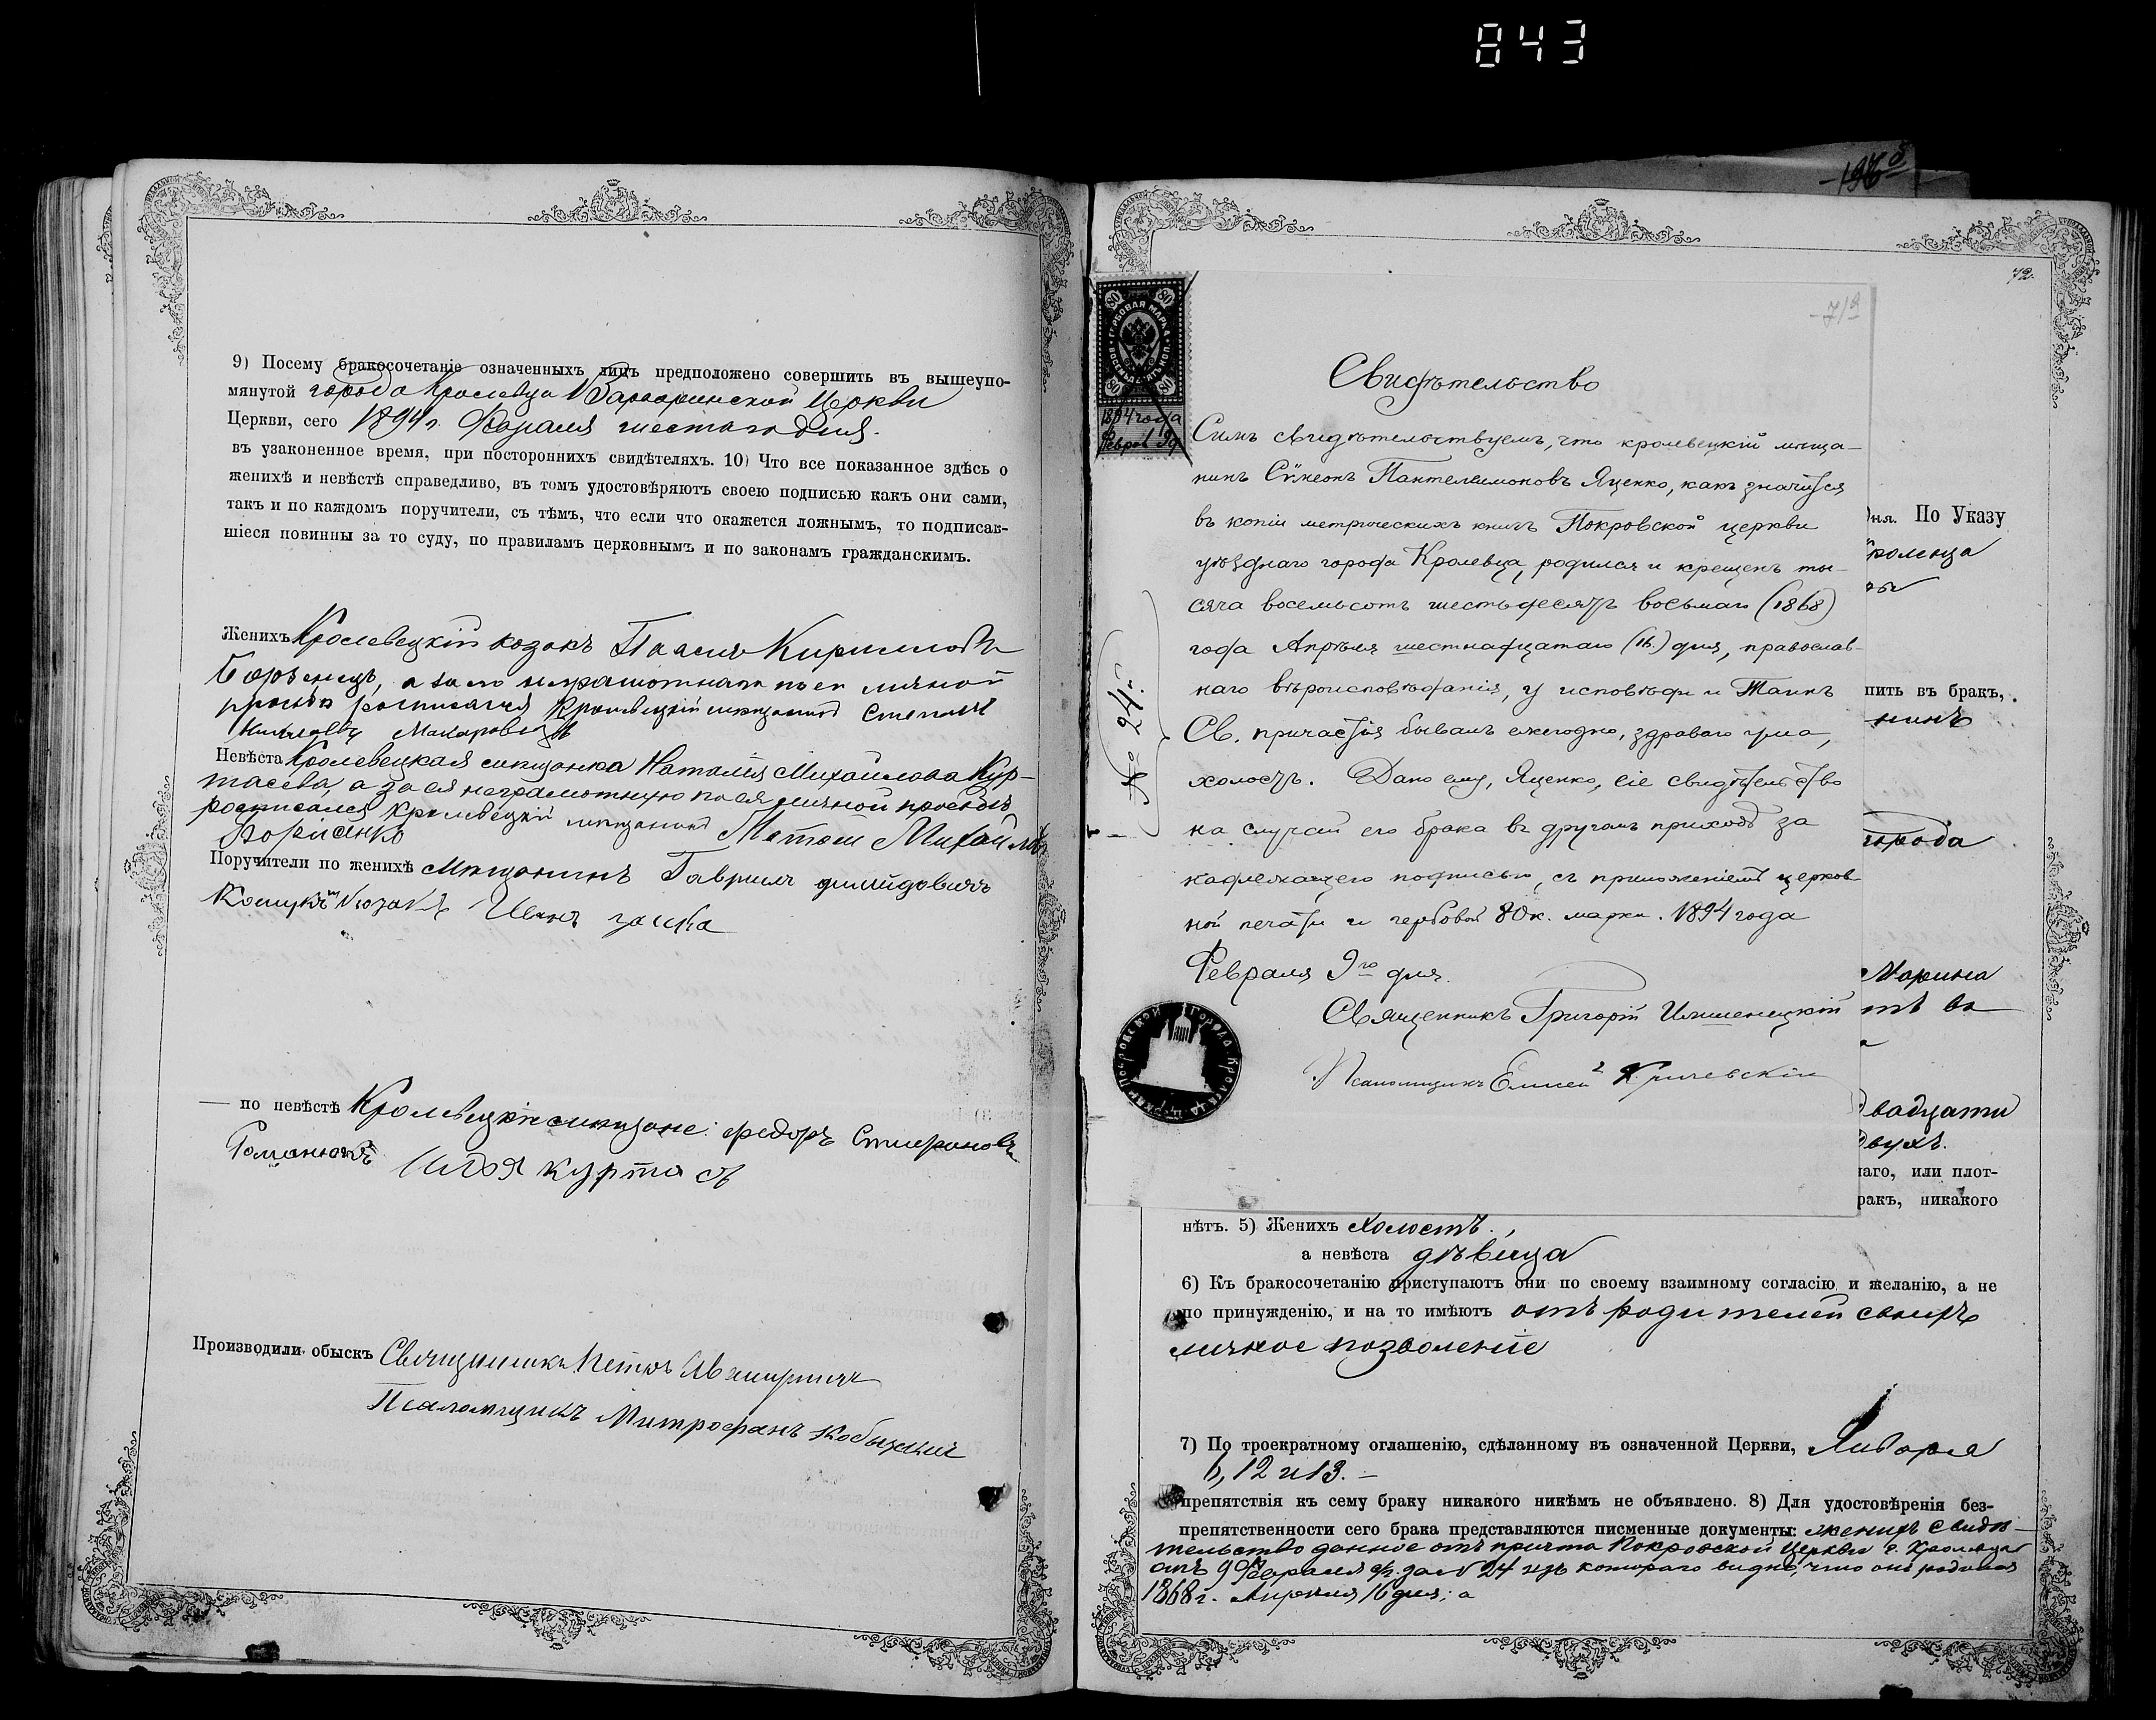 843
9) Посему бракосочетаніе означенныхъ лицъ предположено совершить въ вышеупо-
мянутой города Кролевца Варваринской Церкви
Церкви, сего 1894 г. Февраля шестаго дня.
въ узаконенное время, при постороннихъ свидѣтеляхъ. 10) Что все показанное здѣсь о
женихѣ и невѣстѣ справедливо, въ томъ удостовѣряютъ своею подписью какъ они сами,
такъ и по каждомъ поручители, съ тѣмъ, что если что окажется ложнымъ, то подписав-
шіеся повинны за то суду, по правиламъ церковнымъ и по законамъ гражданскимъ.
Женихъ Кролевецкій козакъ Павелъ Кирилловъ
а за его неграмотнаго по его личной
просьбѣ росписался Кролевецкій мещанинъ Степанъ
Макаровецъ
Невѣста Кролевецкая мѣщанка Наталія Михайлова Кур-
тасева, а за ея неграмотную по ея личной просьбѣ
росписался Кролевецкій мещанинъ Михайловъ
Борисенко
Поручители по женихѣ Мѣщанинъ Гавріилъ
козакъ Иванъ
— по невѣстѣ Кролевецкіе мѣщане: Федоръ Стефановъ
Романюкъ Илья Куртасъ
Производили обыскъ Священникъ Петръ
Псаломщикъ Митрофанъ
72.
80 80
ГЕРБОВАЯ МАРКА
80 80
1894 года
Февр. 9 д.
№ 24.
Свидѣтельство
Симъ свидѣтельствуемъ, что кролевецкій мѣща-
нинъ Сѵмеонъ Пантелеимоновъ Яценко, какъ значится
въ копіи метрическихъ книгъ Покровской церкви
уѣзднаго города Кролевца, родился и крещенъ ты-
сяча восемьсотъ шестьдесятъ восьмаго (1868)
года Апрѣля шестнадцатаго (16.) дня, православ-
наго вѣроисповѣданія, у исповѣди и Таинъ
Св. причастія бывалъ ежегодно, здраваго ума,
холостъ. Дано ему, Яценко, сіе свидѣтельство
на случай его брака въ другомъ приходѣ за
надлежащею подписью, съ приложеніемъ церков-
ной печати и гербовой 80 к. марки. 1894 года
Февраля 9го дня.
Священникъ Григорій
Псаломщикъ Елисей Кричевскій
дня. По Указу
Кролевца
пить въ бракъ,
нинъ
города
Марина
двадцати
двухъ.
наго, или плот-
ракъ, никакого
нѣтъ. 5) Женихъ холостъ,
а невѣста дѣвица
6) Къ бракосочетанію приступаютъ они по своему взаимному согласію и желанію, а не
по принужденію, и на то имѣютъ отъ родителей своихъ
личное позволеніе
7) По троекратному оглашенію, сдѣланному въ означенной Церкви, Января
6, 12 и 13. –
препятствія къ сему браку никакого никѣмъ не объявлено. 8) Для удостовѣренія без-
препятственности сего брака представляются писменные документы: женихъ свидѣ-
тельство данное отъ причта Покровской Церкви г. Кролевца
отъ 9 Февраля за № 24 изъ котораго видно, что онъ родился
1868 г. Апрѣля 16 дня; а